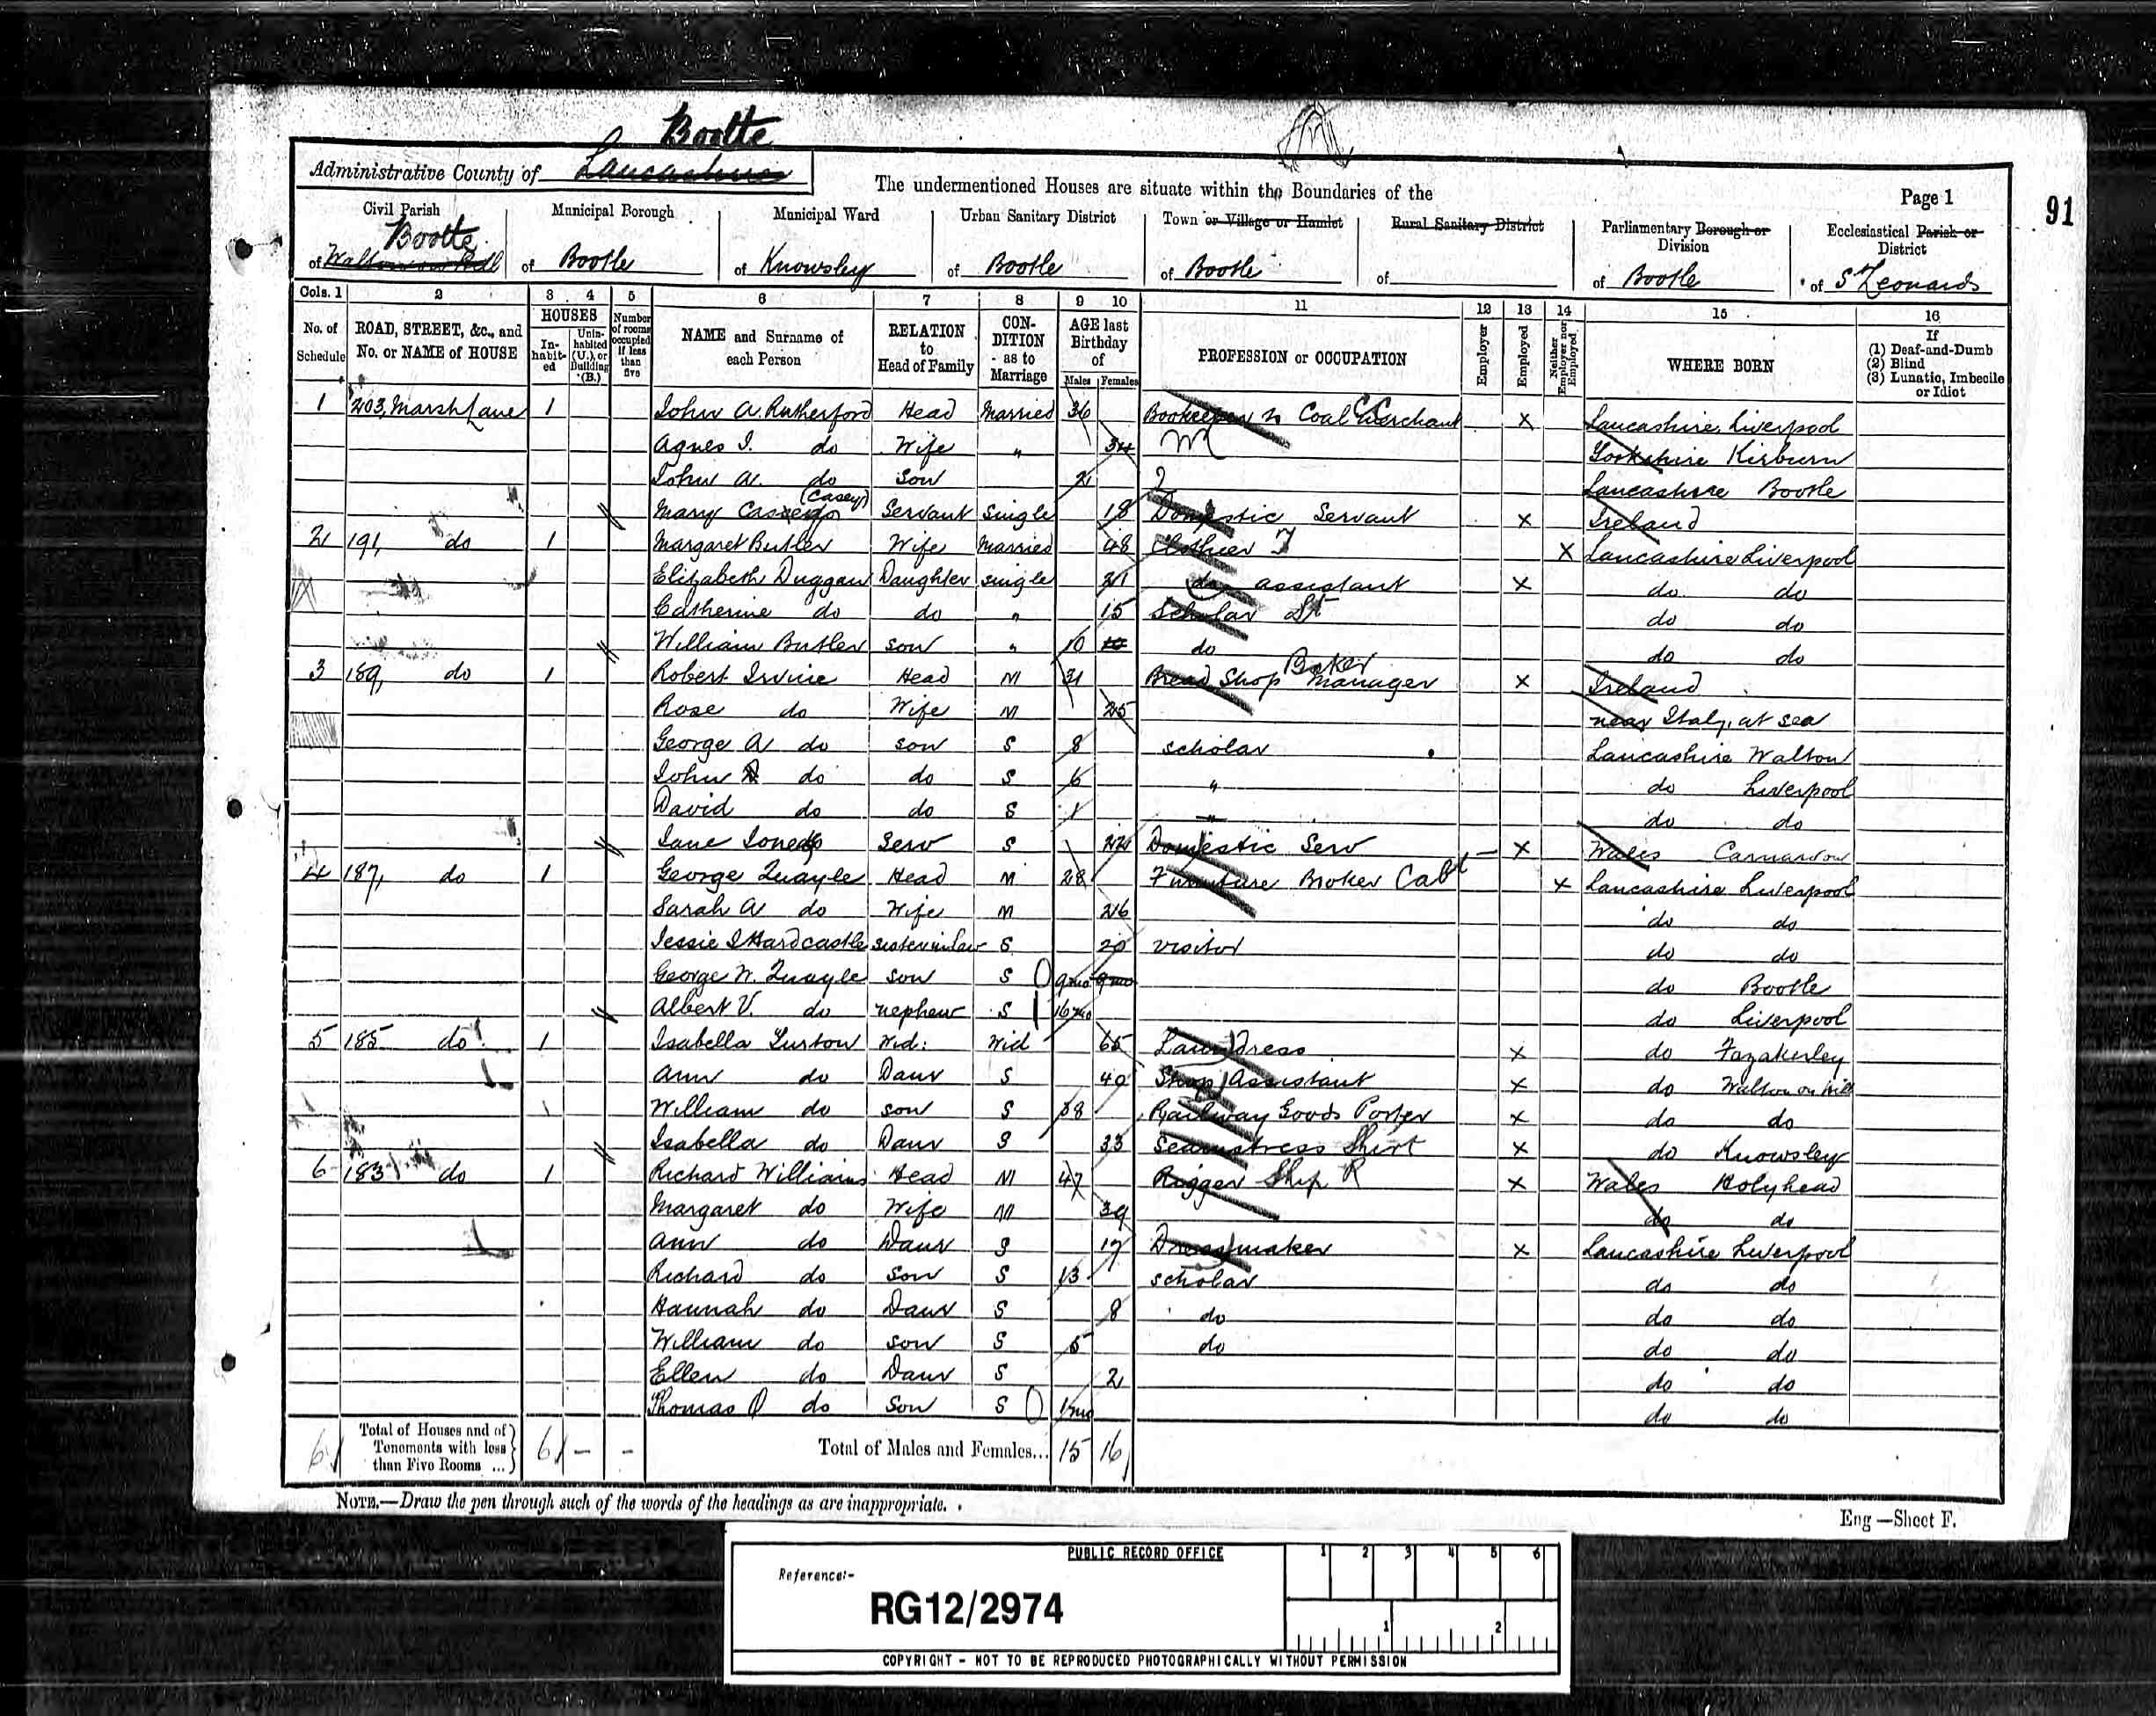 Bootle
Administrative County of Lancashire
The undermentioned Houses are situate within the Boundaries of the
Page 1
91
Civil Parish
of Walton on Hill Bootle
Municipal Borough
of Bootle
Municipal Ward
of Knowsley
Urban Sanitary District
of Bootle
Town or Village or Hamlet
of Bootle
Rural Sanitary District
of
Parliamentary Borough or Division
of Bootle
Ecclesiastical Parish or District
of St Leonards
Cols. 1 2 3 4 5 6 7 8 9 10 11 12 13 14 15 16
No. of Schedule
ROAD, STREET, &c., and No. or NAME of HOUSE
HOUSES
In-habit-ed
Unin-habited (U.), or Building (B.)
Number of rooms occupied if less than five
NAME and Surname of each Person
RELATION to Head of Family
CON-DITION as to Marriage
AGE last Birthday of
Males Females
PROFESSION or OCCUPATION
Employer
Employed
Neither Employer nor Employed
WHERE BORN
If
(1) Deaf-and-Dumb
(2) Blind
(3) Lunatic, Imbecile or Idiot
1 203, Marsh Lane 1 John A. Rutherford Head Married 36 Bookkeeper Coal Merchant X Lancashire, Liverpool
Agnes I. do Wife " 34 Yorkshire Kirburn
John A. do Son 2 Lancashire Bootle
Mary (Casey) Servant Single 18 Domestic Servant X Ireland
2 191, do 1 Margaret Butler Wife Married 48 Clothier X Lancashire Liverpool
Elizabeth Duggan Daughter Single 21 do assistant X do do
Catherine do do " 15 Scholar St do do
William Butler son " 10 do do do
3 189, do 1 Robert Irvine Head M 31 Bread Shop Manager Baker X Ireland
Rose do Wife M 25 near Italy, at sea
George A do son S 8 scholar Lancashire Walton
John do do S 6 " do Liverpool
David do do S 1 " do do
Jane Jones Serv S 22 Domestic Serv X Wales Carnarvon
4 187, do 1 George Quayle Head M 28 Furniture Broker Cabt X Lancashire Liverpool
Sarah A do Wife M 26 do do
Jessie I Hardcastle sister in law S 20 visitor do do
George W. Quayle son S 9mo 9mo do Bootle
Albert V. do nephew S 16mo do Liverpool
5 185 do 1 Isabella Wid: Wid 65 Laundress X do Fazakerley
Ann do Daur S 40 Shop Assistant X do Walton on hill
William do son S 38 Railway Goods Porter X do do
Isabella do Daur S 33 Seamstress Shirt X do Knowsley
6 183 do 1 Richard Williams Head M 47 Rigger Ship R X Wales Holyhead
Margaret do Wife M 39 do do
Ann do Daur S 17 Dressmaker X Lancashire Liverpool
Richard do Son S 13 scholar do do
Hannah do Daur S 8 do do do
William do son S 5 do do do
Ellen do Daur S 2 do do
Thomas O do Son S 1mo do do
6 Total of Houses and of Tenements with less than Five Rooms ... 6 - - Total of Males and Females... 15 16
NOTE.—Draw the pen through such of the words of the headings as are inappropriate.
Eng—Sheet F.
PUBLIC RECORD OFFICE
Reference:-
RG12/2974
1 2 3 4 5 6
1 2
COPYRIGHT - NOT TO BE REPRODUCED PHOTOGRAPHICALLY WITHOUT PERMISSION